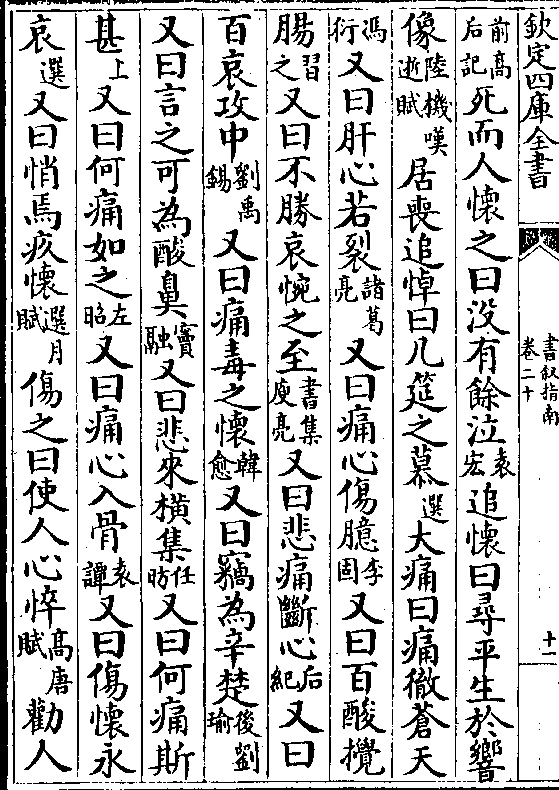 欽定四庫全書
書叙指南
卷二十
十一
前高后記死而人懷之曰没有餘泣袁宏追懷曰尋平生於響
像陸機嘆逝賦居喪追悼曰几筵之慕選大痛曰痛徹蒼天
馮衍又曰肝心若裂諸葛亮又曰痛心傷臆李固又曰百酸攪
腸習之又曰不勝哀惋之至書集庾亮又曰悲痛斷心后紀又曰
百哀攻中劉禹錫又曰痛毒之懷韓愈又曰竊為辛楚後劉瑜
又曰言之可為酸鼻竇融又曰悲來橫集任昉又曰何痛斯
甚上又曰何痛如之左昭又曰痛心入骨袁譚又曰傷懷永
哀選又曰悄焉疚懷選月賦傷之曰使人心悴高唐賦勸人